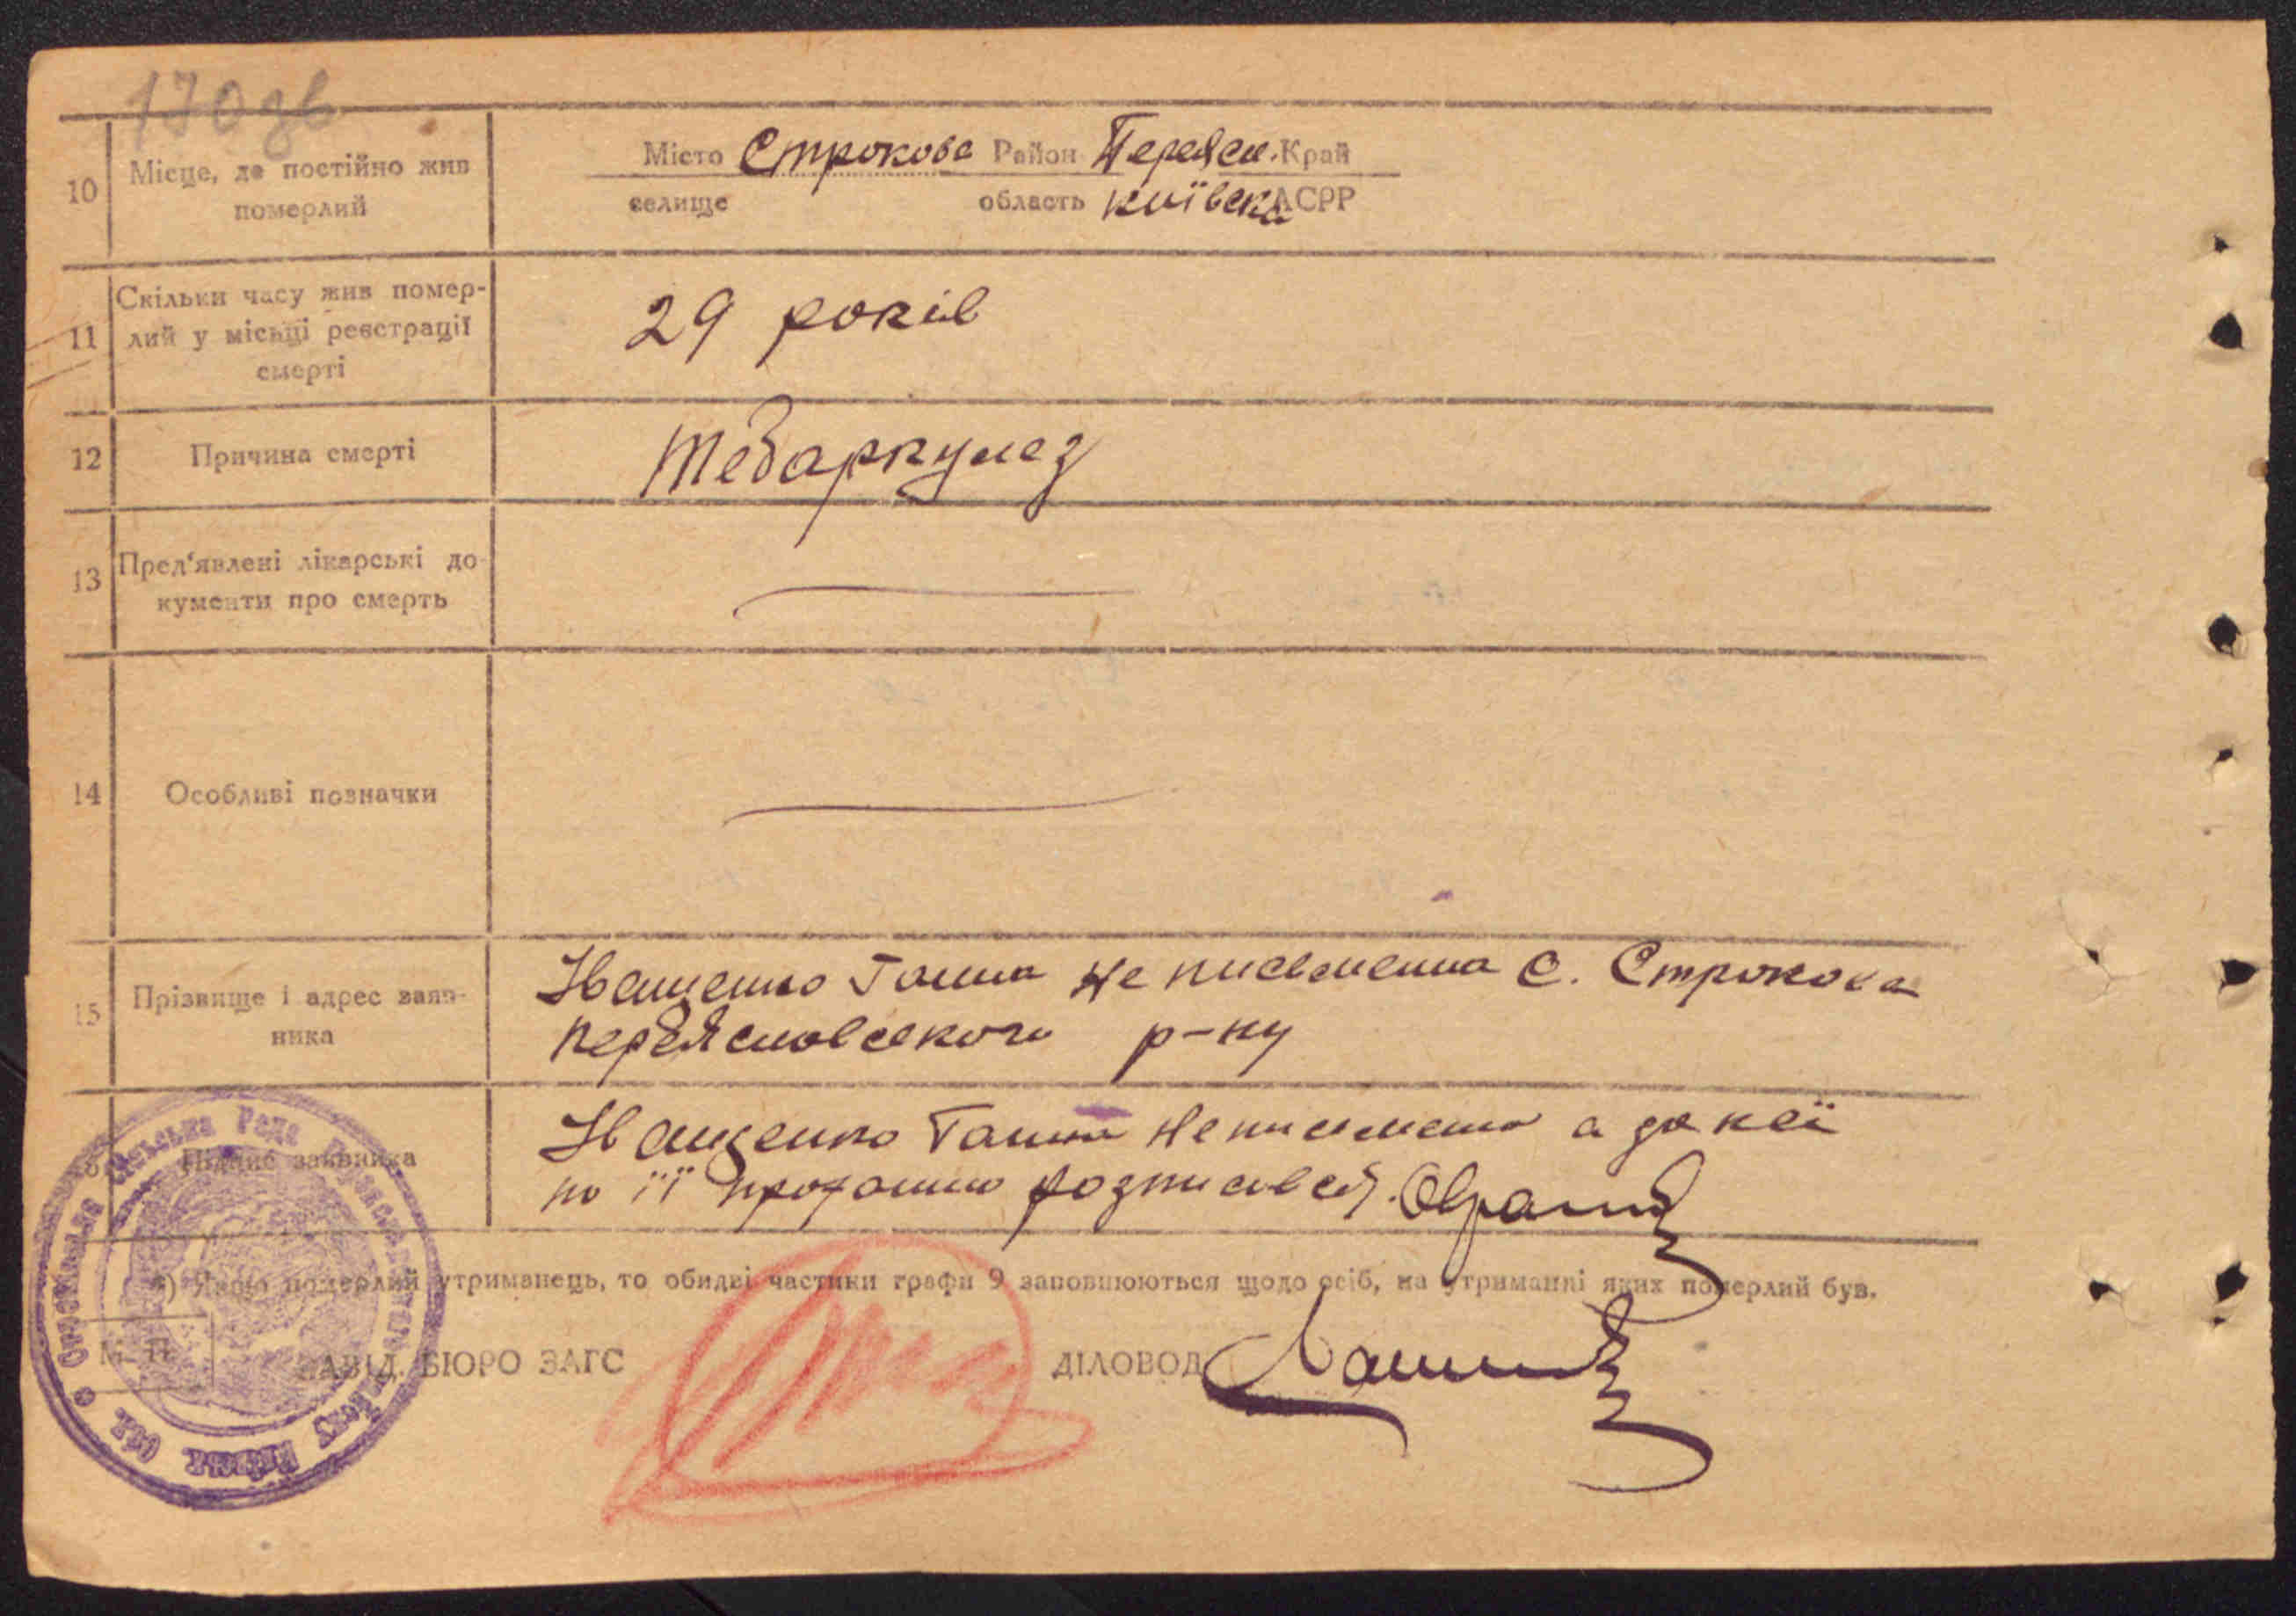 170 зв
10 Місце, де постійно жив померлий
Місто Строкова Район Переясл. Край
селище область київська АСРР
11 Скільки часу жив помер-
лий у місьці реєстрації
смерті
29 років
12 Причина смерті
Тебаркулез
13 Пред'явлені лікарські до-
кументи про смерть
14 Особливі позначки
15 Прізвище і адрес заяв-
ника
Іващенко Ганна не письменна с. Строкова
переяславського р-ну
Підпис заявника
Іващенко Ганна неписьмена а за неї
по її проханню розписався.
*) Якщо померлий утриманець, то обидві частини графи 9 заповнюються щодо осіб, на утриманні яких померлий був.
М. П.
ЗАВІД. БЮРО ЗАГС ДІЛОВОД
Сільська Рада